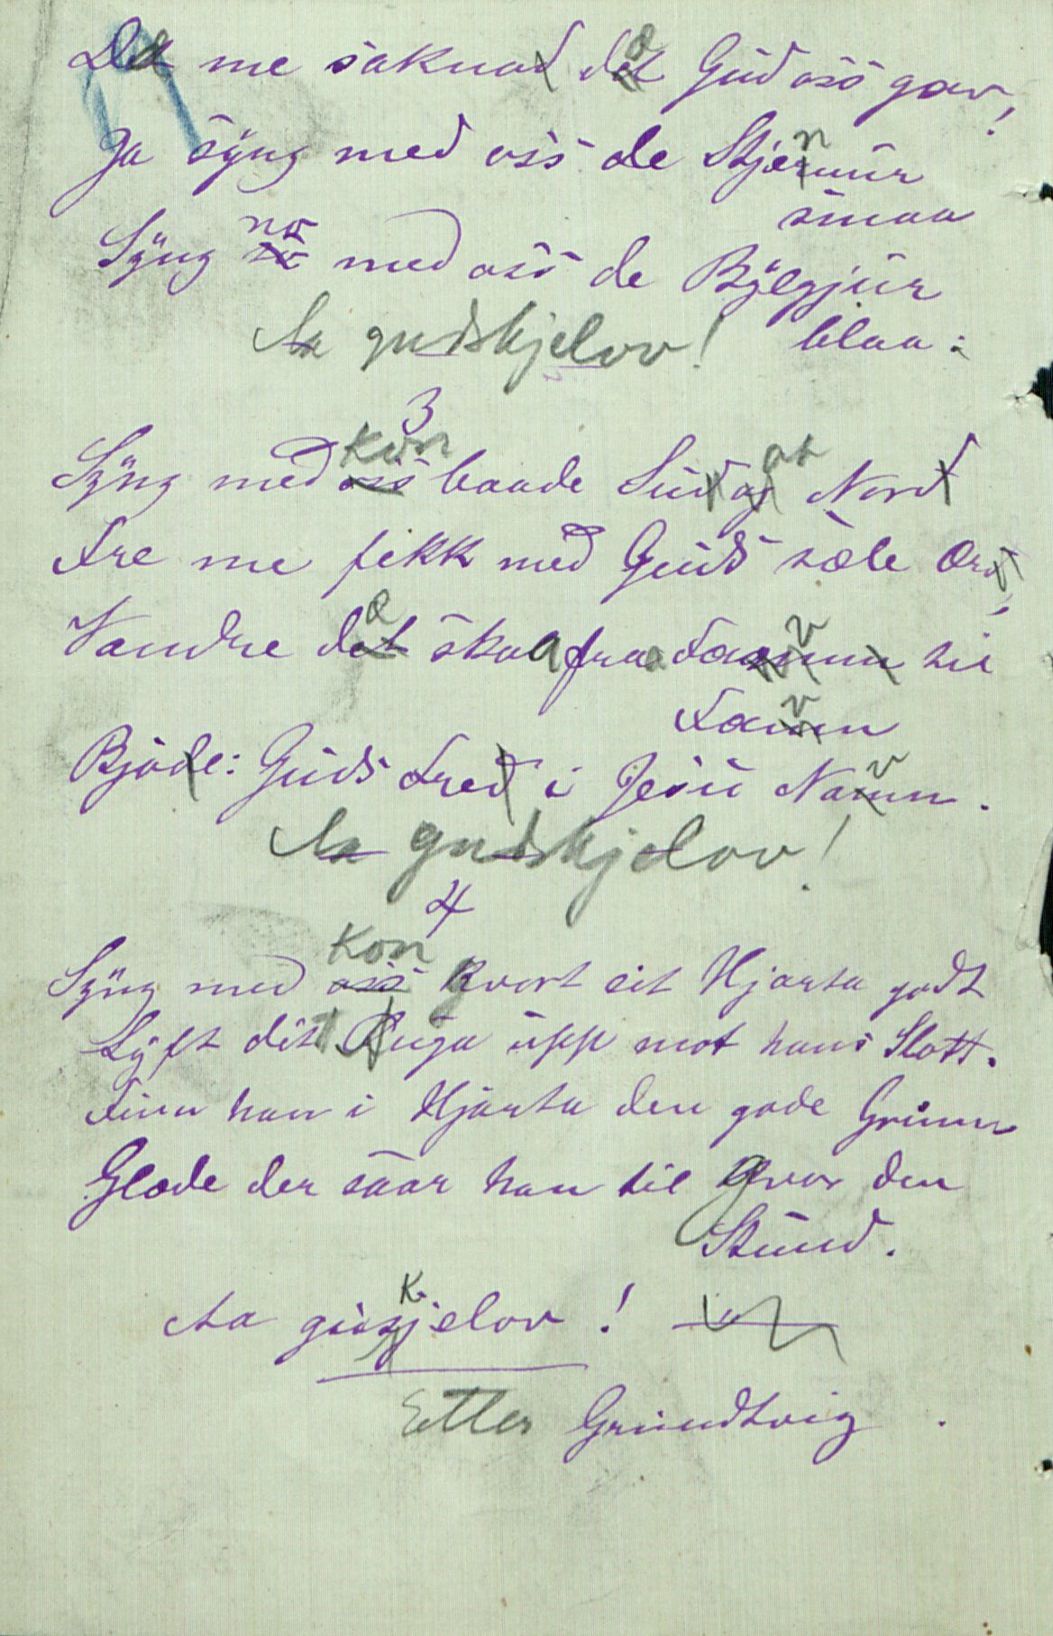 Det me saknad det Gud oss gav!
Ja syng med oss de Stjernur
smaa
Syng no med oss de Bylgjur
blaa:
Aa gudskjelov!
3
Syng med kvn oss baade Sud og Nord
Fre me fekk med Guds sæle Ord,
Vandre det skal fra Famn til
Famn
Bjode: Guds Fred i Jesu Namn.
Aa gudskjelov!
4
Syng med kor oss kvort eit Hjarta godt
Lyft dit Auga upp mot hans Slott.
Finn han i Hjarta den gode Grunn
Glæde der saar han til kvar den
Stund.
Aa guskjelov!
Etter Grundtvig.